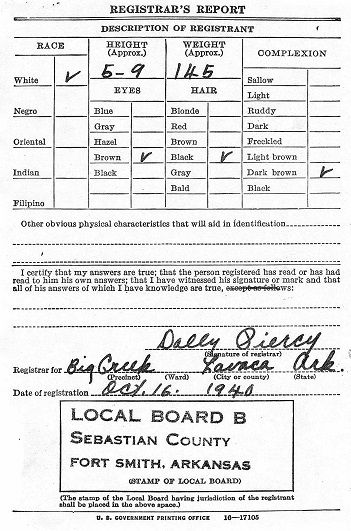 REGISTRAR'S REPORT
DESCRIPTION OF REGISTRANT
RACE
HEIGHT (Approx.)
WEIGHT (Approx.)
COMPLEXION
White ✓
5-9
145
Sallow
Light
EYES
HAIR
Negro
Blue
Blonde
Ruddy
Gray
Red
Dark
Oriental
Hazel
Brown
Freckled
Brown ✓
Black ✓
Light brown
Indian
Black
Gray
Dark brown ✓
Bald
Black
Filipino
Other obvious physical characteristics that will aid in identification
I certify that my answers are true; that the person registered has read or has had
read to him his own answers; that I have witnessed his signature or mark and that
all of his answers of which I have knowledge are true, except as follows:
Dolly Piercy
(Signature of registrar)
Registrar for Big Creek Lavaca Ark.
(Precinct) (Ward) (City or county) (State)
Date of registration Oct. 16. 1940
LOCAL BOARD B
SEBASTIAN COUNTY
FORT SMITH, ARKANSAS
(STAMP OF LOCAL BOARD)
(The stamp of the Local Board having jurisdiction of the registrant
shall be placed in the above space.)
U. S. GOVERNMENT PRINTING OFFICE 16—17105